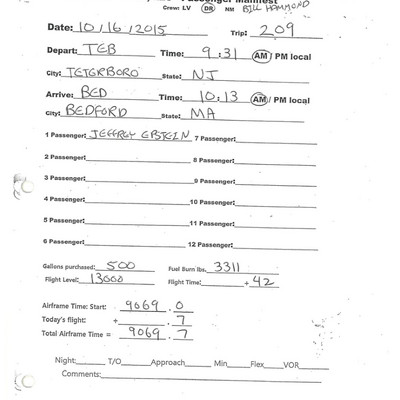 Passenger Manifest
Crew: LV DR NM BILL HAMMOND
Date: 10/16/2015 Trip: 209
Depart: TEB Time: 9:31 AM / PM local
City: TETERBORO State: NJ
Arrive: BED Time: 10:13 AM / PM local
City: BEDFORD State: MA
1 Passenger: JEFFREY EPSTEIN 7 Passenger:
2 Passenger: 8 Passenger:
3 Passenger: 9 Passenger:
4 Passenger: 10 Passenger:
5 Passenger: 11 Passenger:
6 Passenger: 12 Passenger:
Gallons purchased: 500 Fuel Burn lbs. 3311
Flight Level: 13000 Flight Time: + 42
Airframe Time: Start: 9069 . 0
Today's flight: + . 7
Total Airframe Time = 9069 . 7
Night: T/O Approach Min Flex VOR
Comments: